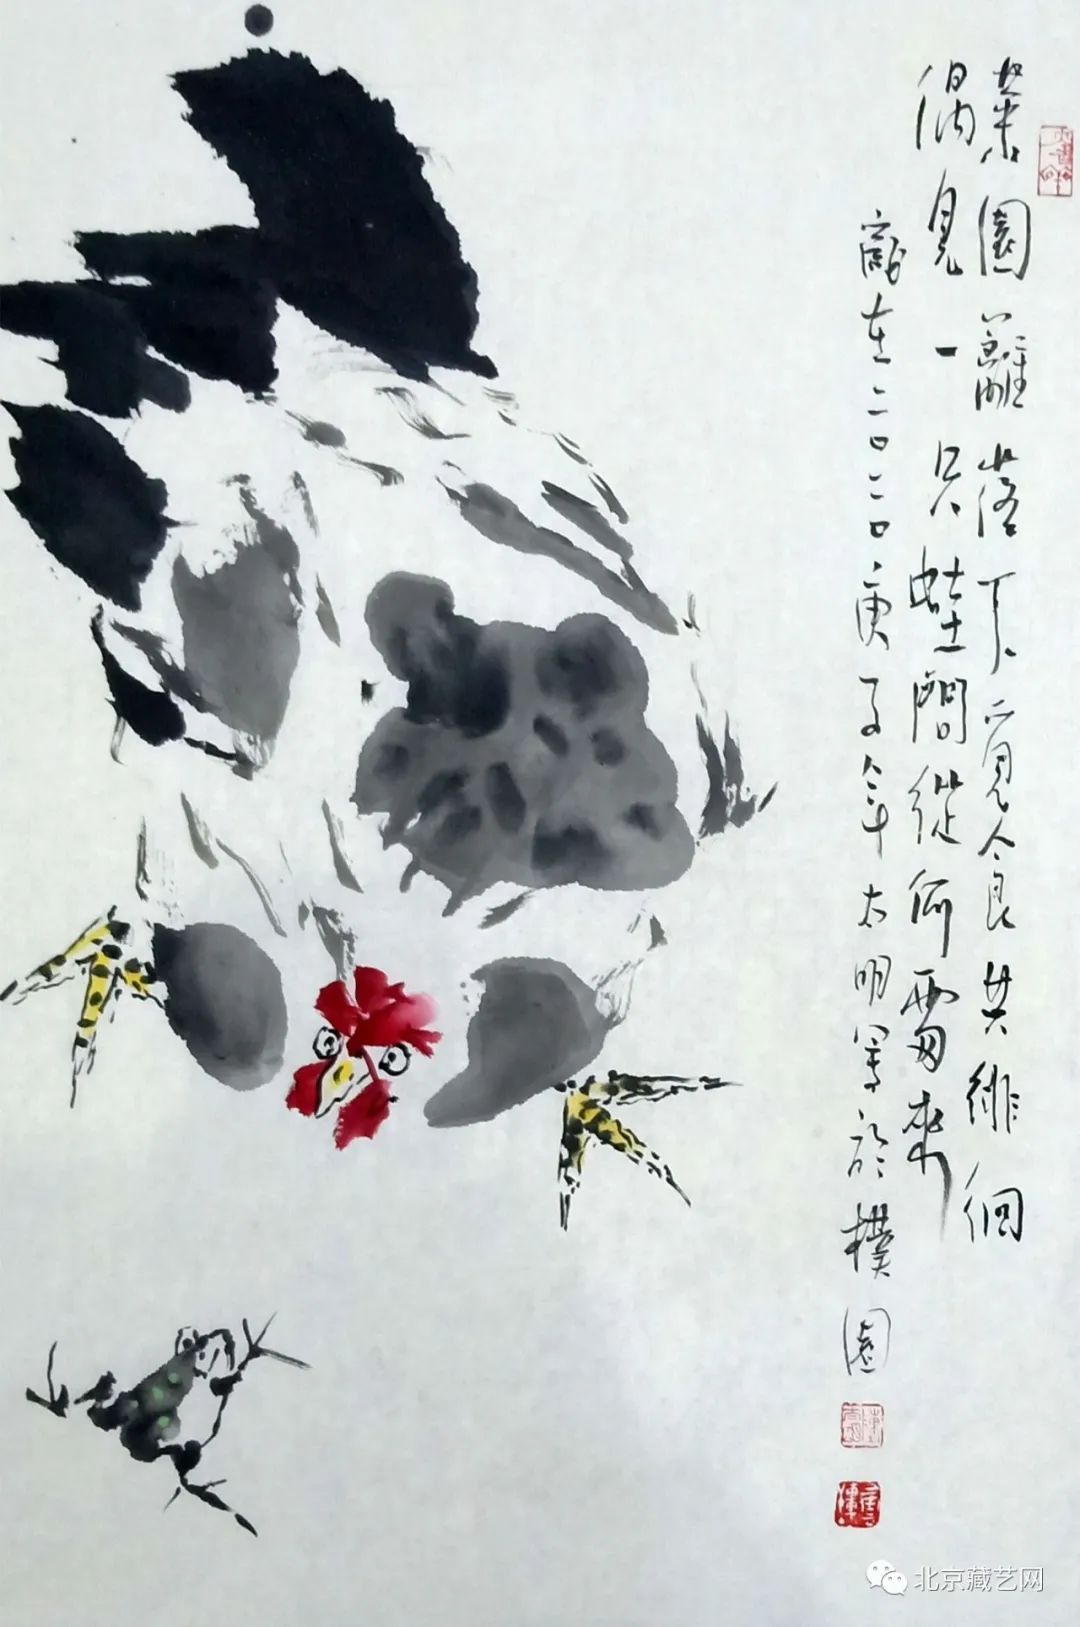 菜園籬落下覓食共徘徊
偶見一只蛙問從何處來
歲在二〇二〇庚子年太明写於樸園
北京藏艺网